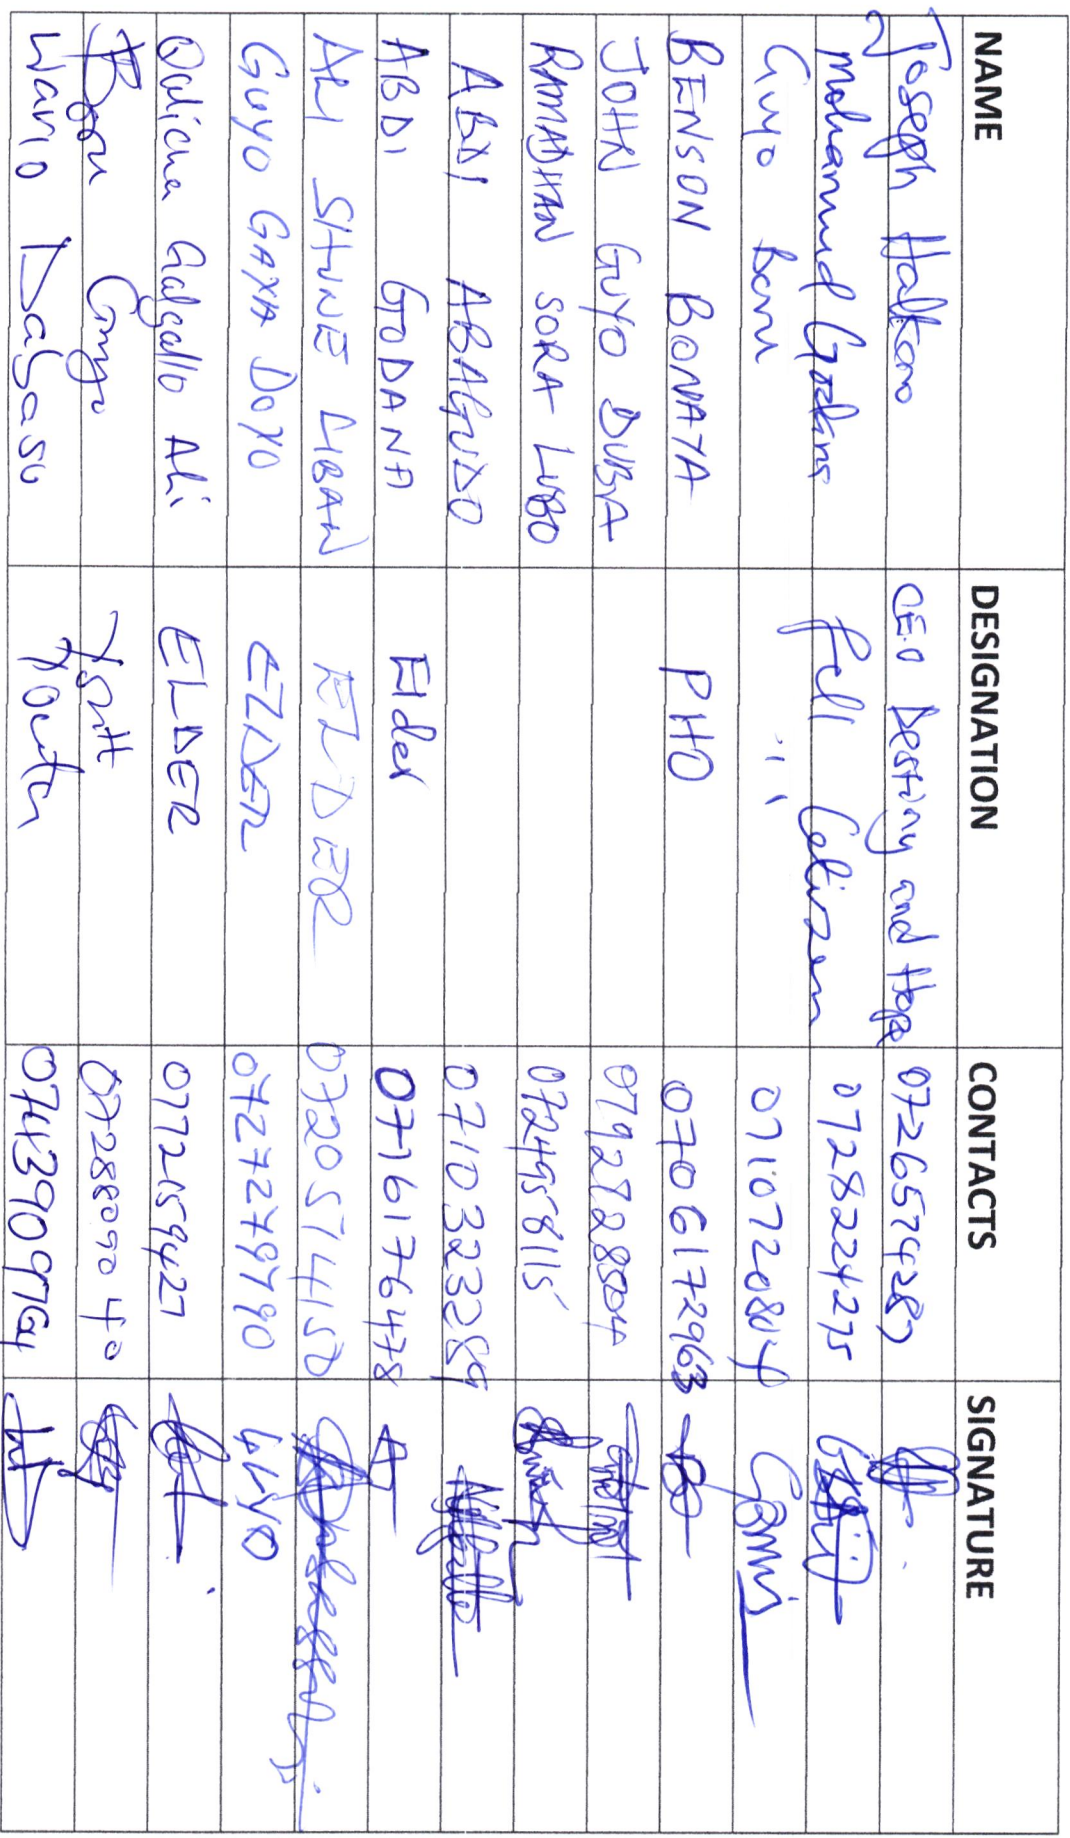 NAME DESIGNATION CONTACTS SIGNATURE
Joseph Halkano CEO Destiny and Hope 0726574287
Mohammed Godana 0728224275
Guyo Boru " 0710720804
BENSON BONAYA PHO 0706172963
JOHN GUYO DUBA
RAMADHAN SORA LUBO 0724958115
ABDI ABAGUDO 0710323289
ABDI GODANA Elder 0716176478
ALI SHUNE LIBAN ELDER 0720574150
GUYO GAXA DOYO ELDER 0727279790 GUYO
Qalicha Galgallo Ali ELDER 0772159427
Boru Guyo 0728809040
Wario Dabaso Youth